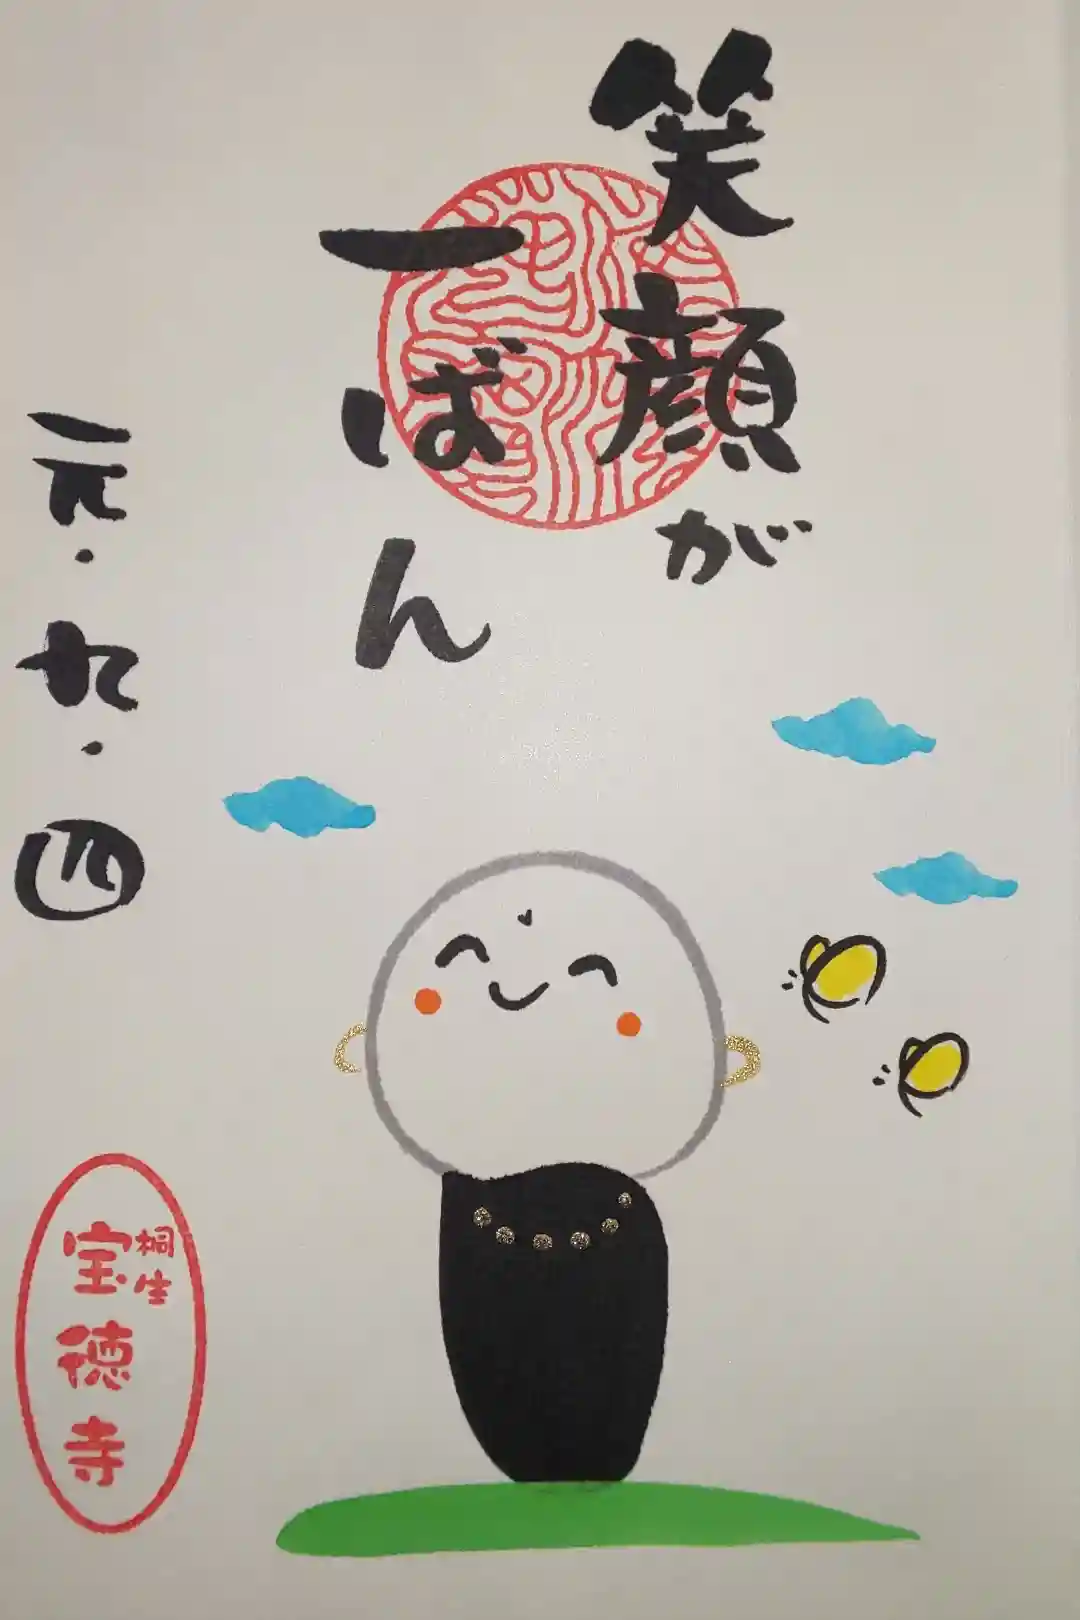 笑顔が
一ばん
元・九・四
桐生
宝徳寺